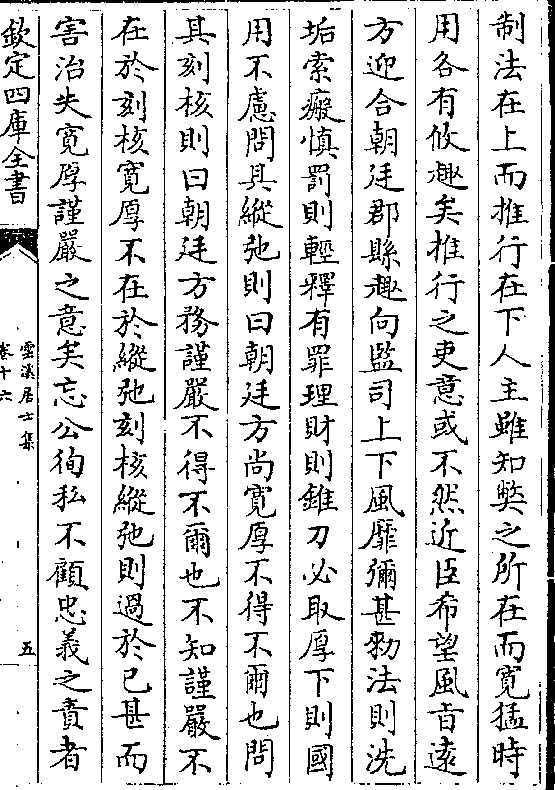 制法在上而推行在下人主雖知弊之所在而寛猛時
用各有攸趣矣推行之吏意或不然近臣希望風㫖遠
方迎合朝廷郡縣趣向監司上下風靡彌甚勑法則洗
垢索瘢慎罰則輕釋有罪理財則錐刀必取厚下則國
用不慮問其縱弛則曰朝廷方尚寛厚不得不爾也問
其刻核則曰朝廷方務謹嚴不得不爾也不知謹嚴不
在於刻核寛厚不在於縱弛刻核縱弛則過於已甚而
害治失寛厚謹嚴之意矣忘公徇私不顧忠義之責者
欽定四庫全書
雲溪居士集
卷十六
五